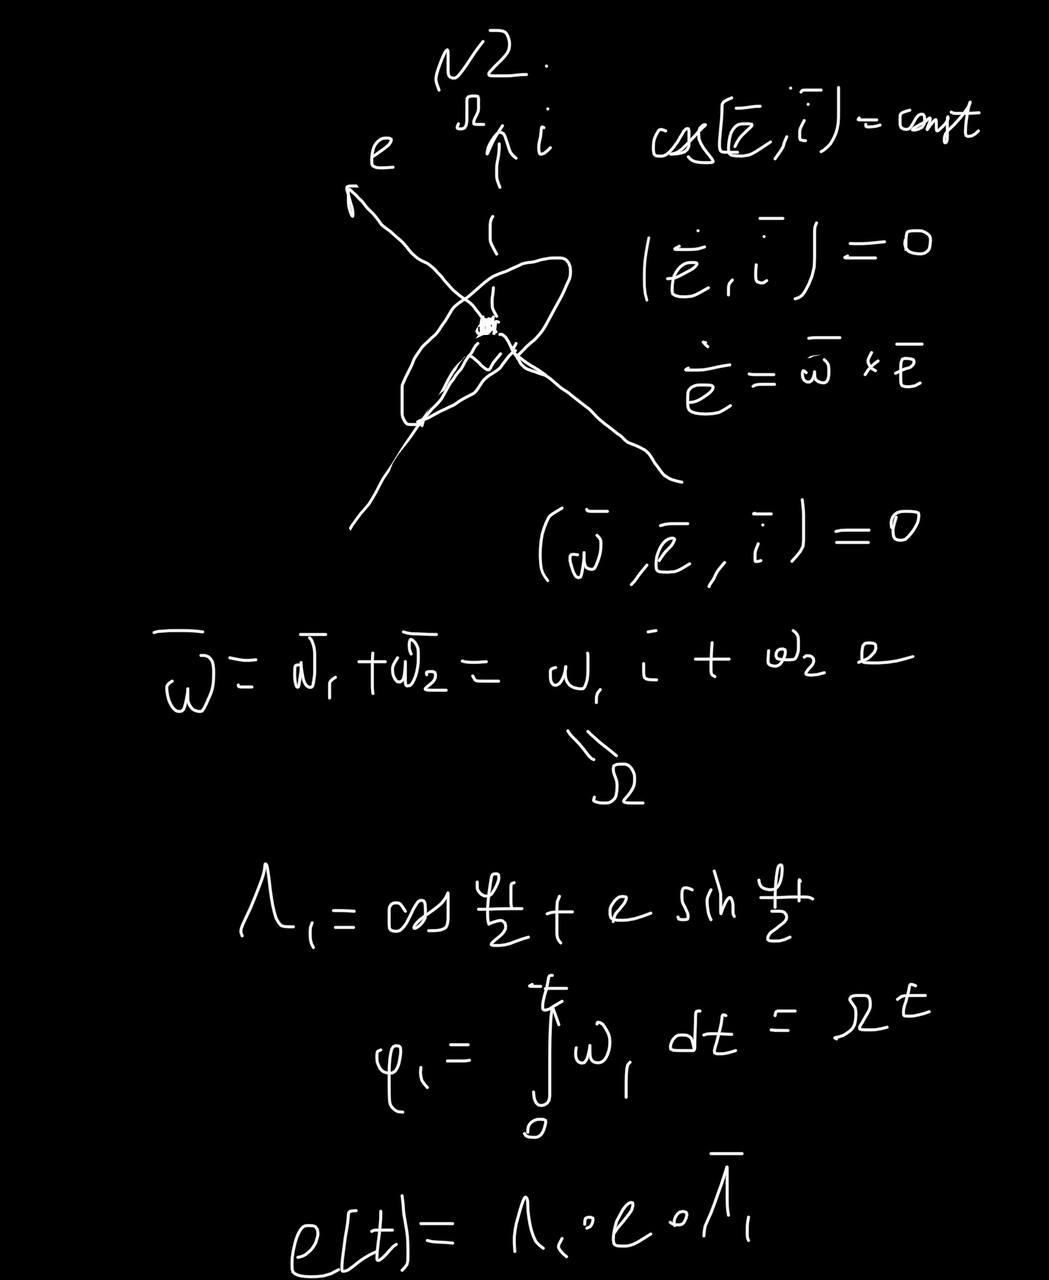 N2.
Ω i
e
cos(ē, ī) = const
(ē̇, ī) = 0
ē̇ = ω̄ × ē
(ω̄, ē, ī) = 0
ω̄ = ω̄₁ + ω̄₂ = ω₁ i + ω₂ e
Ω
Λ₁ = cos φ₁/2 + e sin φ₁/2
φ₁ = ∫₀ᵗ ω₁ dt = Ωt
e(t) = Λ₁ ∘ e ∘ Λ̄₁